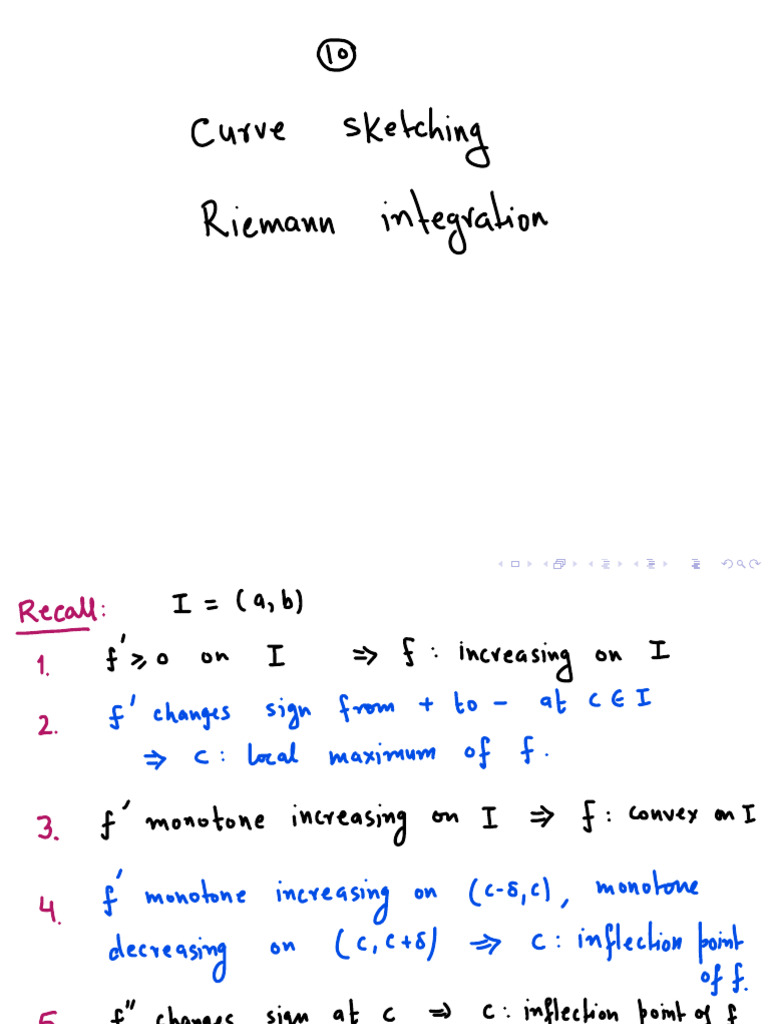 10
Curve sketching
Riemann integration
Recall: I = (a, b)
1. f' ⩾ 0 on I ⇒ f : increasing on I
2. f' changes sign from + to - at c ∈ I
⇒ c : local maximum of f.
3. f' monotone increasing on I ⇒ f : convex on I
4. f' monotone increasing on (c-δ, c), monotone
decreasing on (c, c+δ) ⇒ c : inflection point
of f.
5. f" changes sign at c ⇒ c : inflection point of f